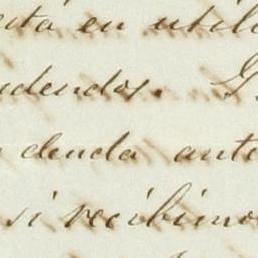 en utili
dendos.
deuda ante
si recibimo